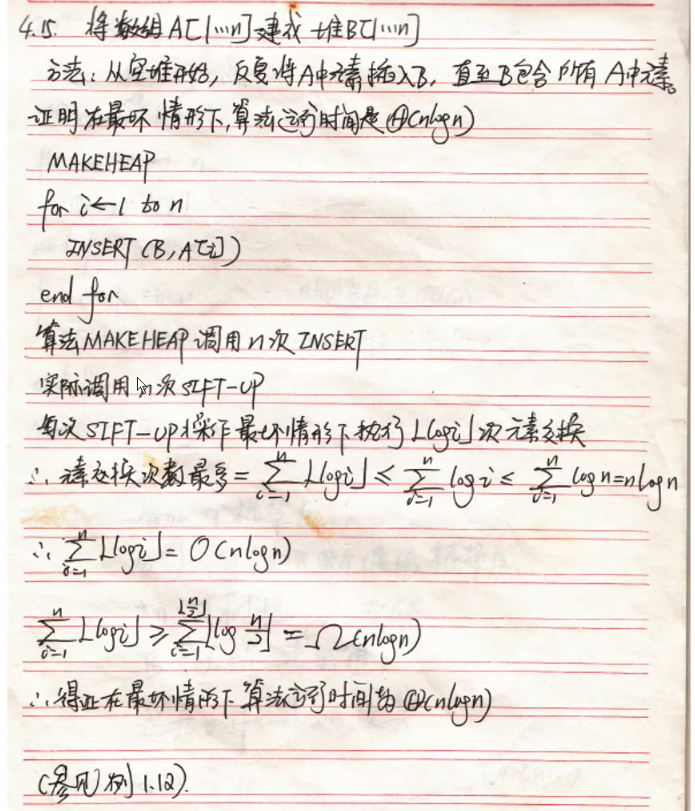 4.15. 将数组A[1…n]建成一堆B[1…n]
方法：从空堆开始，反复将A中元素插入B，直至B包含所有A中元素。
证明在最坏情形下，算法运行时间是Θ(nlogn)
MAKEHEAP
for i←1 to n
INSERT(B,A[i])
end for
算法MAKEHEAP调用n次INSERT
实际调用n次SIFT-UP
每次SIFT-UP操作最坏情形下执行⌊logi⌋次元素交换
∴元素交换次数最多=∑_{i=1}^{n}⌊logi⌋≤∑_{i=1}^{n}logi≤∑_{i=1}^{n}logn=nlogn
∴∑_{i=1}^{n}⌊logi⌋=O(nlogn)
∑_{i=1}^{n}⌊logi⌋≥∑_{i=1}^{⌊n/2⌋}⌊log n/2⌋=Ω(nlogn)
∴得证在最坏情形下算法运行时间为Θ(nlogn)
(参见例1.12).